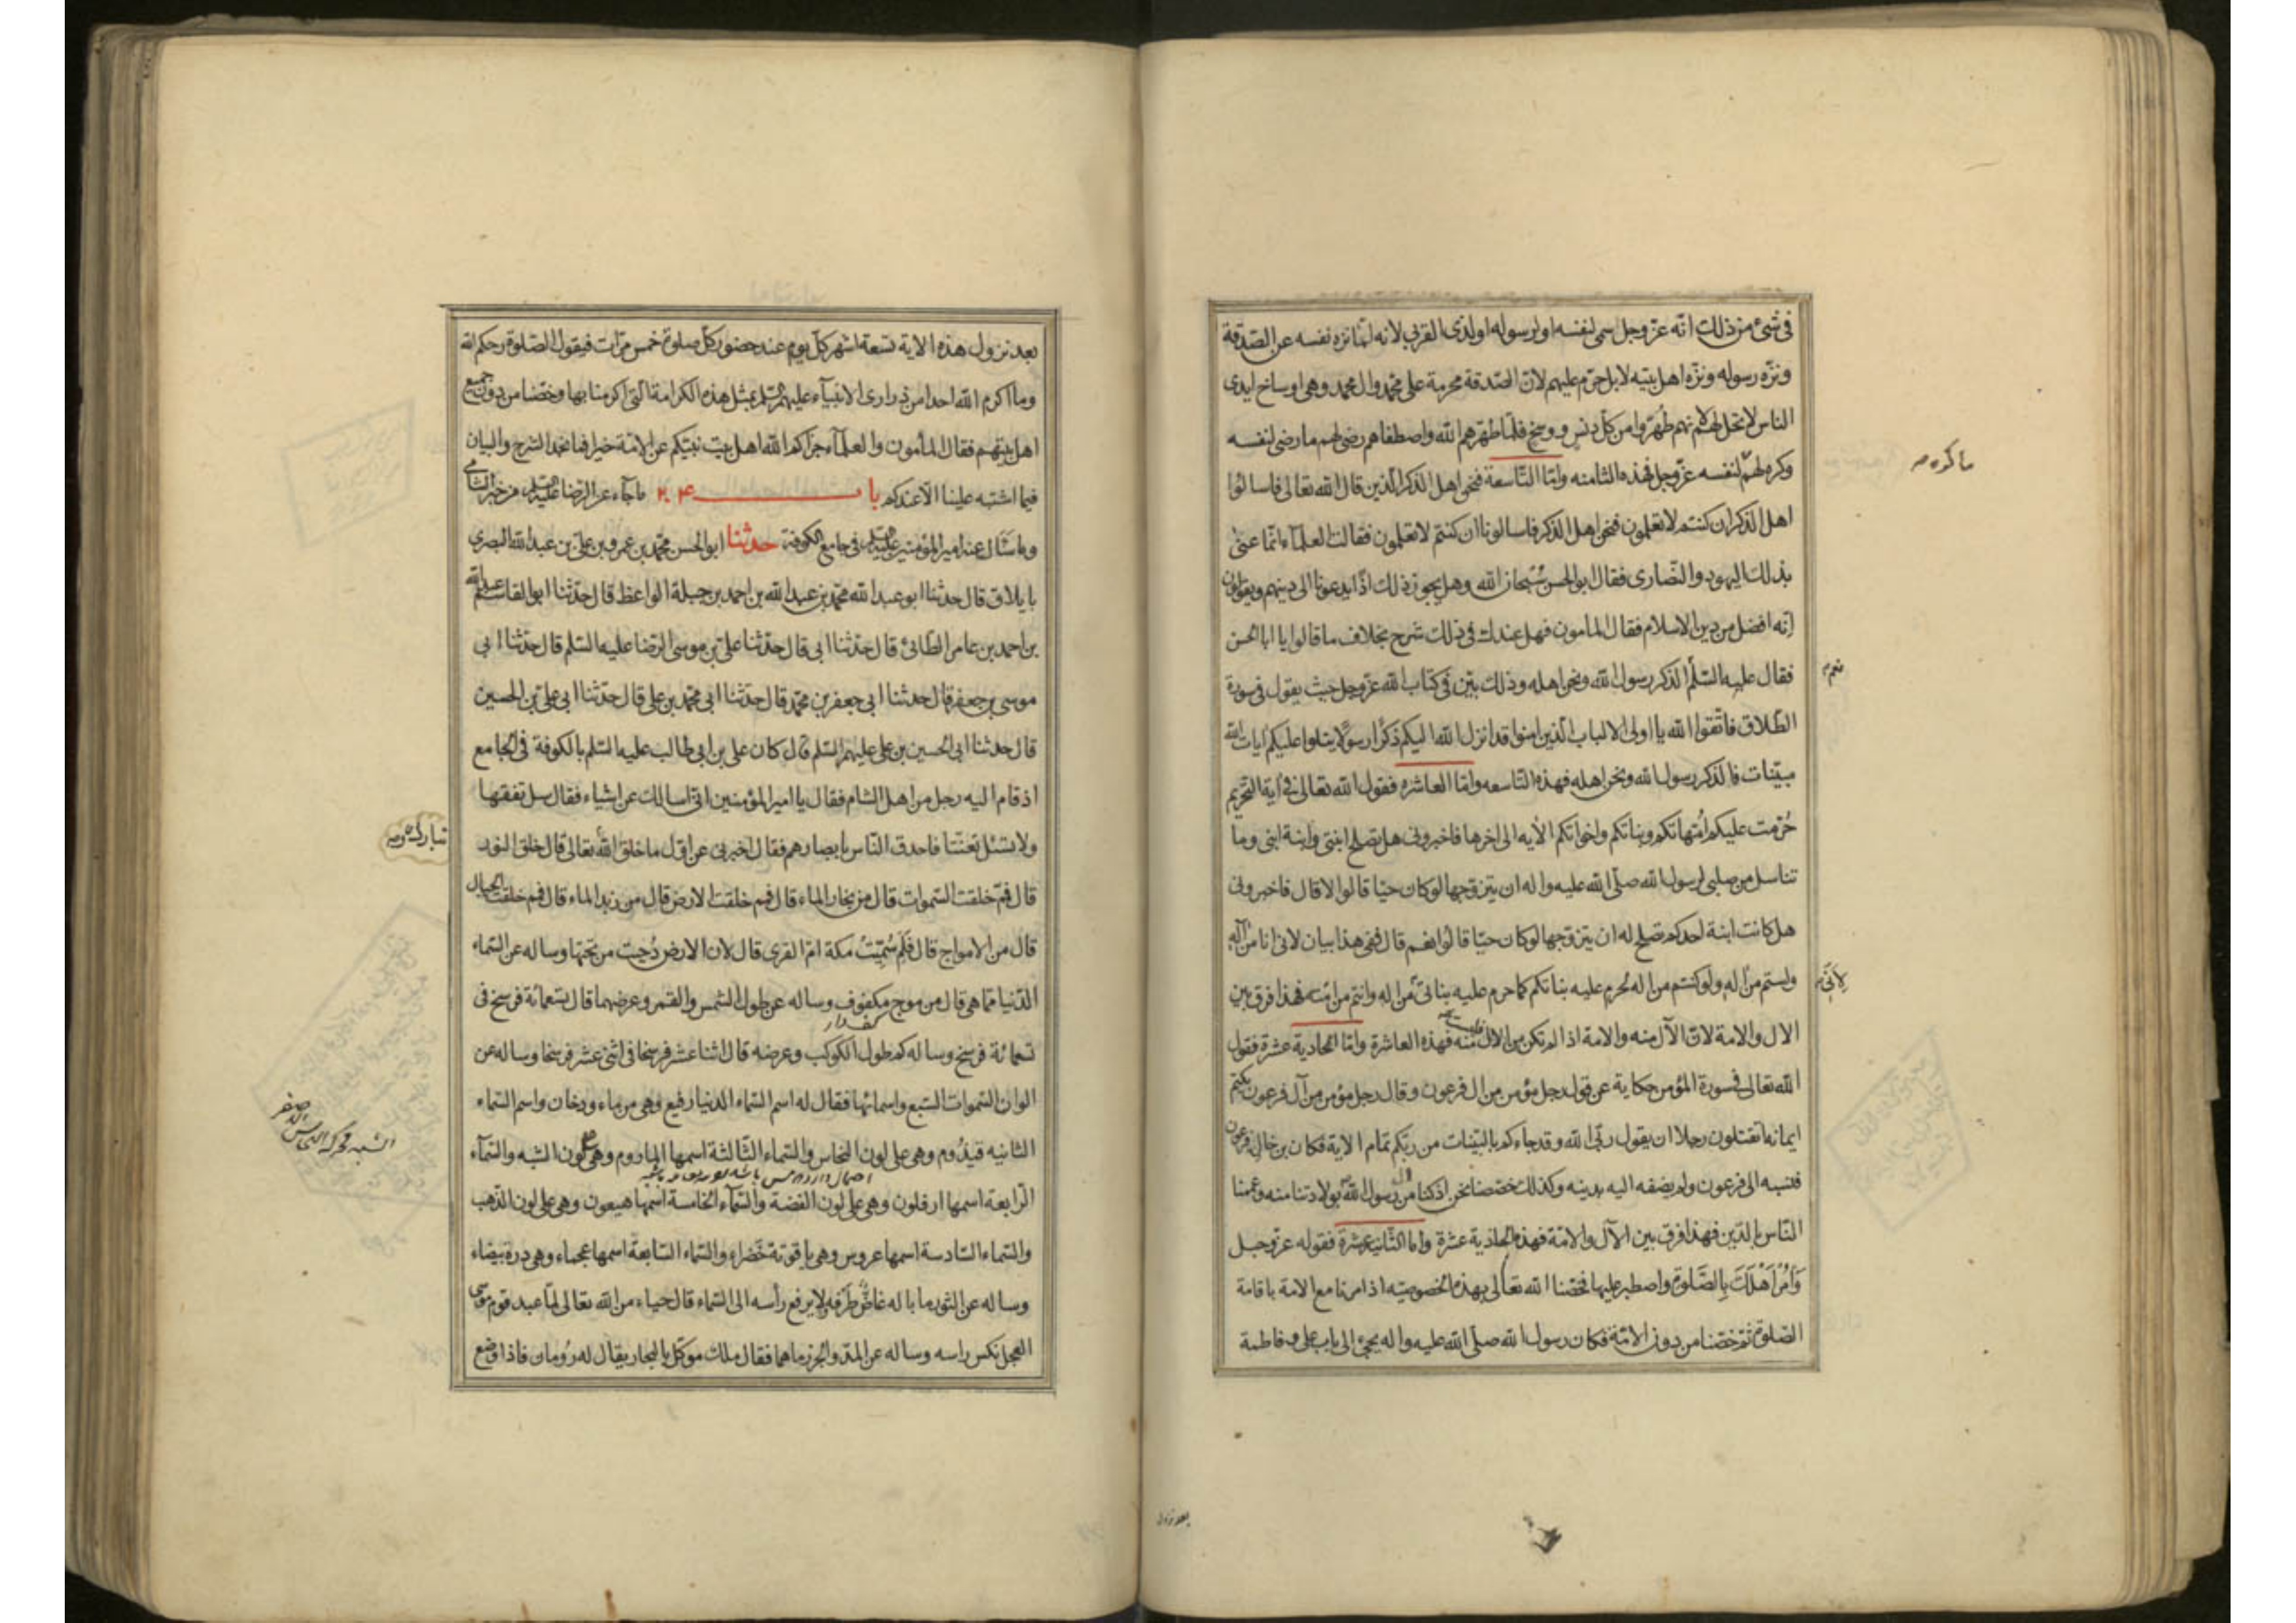 في شئ من ذلك انه عز وجل سمى لنفسه او لرسوله او لذى القربى لانه لما نزه نفسه عن الصدقة
ونزّه رسوله ونزّه اهل بيته لا بل حرّم عليهم لانّ الصدقة محرمة على محمّد وال محمد وهى اوساخ ايدى
الناس لا تحل لهم لانهم طُهّروا من كلّ دنس و وسخ فلمّا طهّرهم الله واصطفاهم رضى لهم ما رضى لنفسه
وكره لهم ما كره لنفسه عزّ وجل فهذه الثامنه وامّا التّاسعة فنحن اهل الذكر الّذين قال الله تعالى فاسالوا
اهل الذكر ان كنتم لا تعلمون فنحن اهل الذكر فاسالونا ان كنتم لا تعلمون فقالت العلمآء انّما عنى
بذلك اليهود والنّصارى فقال ابو الحسن سُبحان الله وهل يجوز ذلك اذًا يدعونا الى دينهم ويقولون
إنّه افضل من دين الاسلام فقال المامون فهل عندك فى ذلك شرح بخلاف ما قالوا يا ابا الحسن
فقال عليه السّلم الذكر رسول الله ونحن اهله وذلك بيّن فى كتاب الله عزّ وجل حيث يقول فى سورة
الطّلاق فاتّقوا الله يا اولى الالباب الّذين امنوا قد انزل الله اليكم ذكرًا رسولًا يتلوا عليكم ايات الله
مبيّنات فالذكر رسول الله ونحن اهله فهذه التاسعه وامّا العاشره فقول الله تعالى فى آية التّحريم
حُرّمت عليكم امّهاتكم وبناتكم واخواتكم الآيه الى اخرها فاخبرونى هل تصلح ابنتى وابنة ابنى وما
تناسل من صلبى لرسول الله صلّى الله عليه واله ان يتزوّجها لو كان حيّا قالوا لا قال فاخبرونى
هل كانت ابنة احدكم تصلح له ان يتزوّجها لو كان حيّا قالوا نعم قال ففى هذا بيان لانى انا من آله
ولستم من آله ولو كنتم من اله لحرم عليه بناتكم كما حرم عليه بناتى من اله وانتم من امّته فهذا فرق بين
الال والامة لانّ الآل منه والامة اذا لم تكن من الال فليست منه فهذه العاشرة وامّا الحادية عشرة فقول
الله تعالى فى سورة المؤمن حكاية عن قول رجل مؤمن من ال فرعون وقال رجل مؤمن من آل فرعون يكتم
ايمانه أتقتلون رجلا ان يقول ربّى الله وقد جاءكم بالبيّنات من ربّكم تمام الآية فكان بن خال فرعون
فنسبه الى فرعون ولم يضفه اليه بدينه وكذلك خصصنا نحن اذ كنا من آل رسول الله بولادتنا منه وعممنا
النّاس بالدّين فهذا فرق بين الآل والامّة فهذه الحادية عشرة وامّا الثّانية عشرة فقوله عزّ وجل
وَأمُرْ اَهْلَكَ بِالصَّلوةِ واصطبر عليها فخصّنا الله تعالى بهذه الخصوصيّه اذ امرنا مع الامة باقامة
الصّلوة ثمّ خصّنا من دون الامّة فكان رسول الله صلّى الله عليه واله يجئ الى باب على وفاطمة
ما كره
نعم
لِأنّى
بعد نزول
بعد نزول هذه الآية تسعة اشهر كلّ يوم عند حضور كلّ صلوة خمس مرّات فيقول الصّلوة رحمكم الله
وما اكرم الله احدا من ذرارى الانبيآء عليهم السّلم بمثل هذه الكرامة الّتى اكرمنا بها وخصّنا من دون جميع
اهل بيتهم فقال المأمون والعلمآء جزاكم الله اهل بيت نبيّكم عن الامّة خيرا فما نجد الشرح والبيان
فيما اشتبه علينا الّا عندكم باب ۲۴ ما جآء عن الرّضا عليه السّلم من خبر الشّامى
وما سأل عنه امير المؤمنين عليه السّلم فى جامع الكوفة حدثنا ابو الحسن محمّد بن عمرو بن علىّ بن عبد الله البصرى
بايلاق قال حدثنا ابو عبد الله محمّد بن عبد الله بن احمد بن جبلة الواعظ قال حدّثنا ابو القاسم عبد الله
بن احمد بن عامر الطّائىّ قال حدّثنا ابى قال حدّثنا علىّ بن موسى الرّضا عليه السّلم قال حدّثنا ابى
موسى بن جعفر قال حدثنا ابى جعفر بن محمّد قال حدّثنا ابى محمّد بن على قال حدّثنا ابى علىّ بن الحسين
قال حدثنا ابى الحسين بن على عليهم السّلم قال كان على بن ابى طالب عليه السّلم بالكوفة فى الجامع
اذ قام اليه رجل من اهل الشام فقال يا امير المؤمنين انّى اسالك عن اشياء فقال سل تفقّها
ولا تسئل تعنّتا فاحدق النّاس بابصارهم فقال اخبرنى عن اوّل ما خلق الله تعالى قال خلق النور
قال فممّ خلقت السّموات قال من بخار الماء قال فممّ خلقت الارض قال من زبد الماء قال فمم خلقت الجبال
قال من الامواج قال فَلِمَ سُمّيتْ مكة امّ القرى قال لان الارض دُحيت من تحتها وساله عن السّماء
الدّنيا ممّا هى قال من موج مكفوف وساله عن طول الشمس والقمر وعرضهما قال تسعمائة فرسخ فى
تسعمائة فرسخ وساله كم طول الكوكب وعرضه قال اثنا عشر فرسخا فى اثنى عشر فرسخا وساله عن
الوان السّموات السّبع واسمائها فقال له اسم السّماء الدنيا رفيع وهى من ماء ودخان واسم السّماء
الثانيه قيدُوم وهى على لون النحاس والسّماء الثّالثة اسمها الماروم وهى على لون الشبه والسّمآء
الرّابعة اسمها ارفلون وهى على لون الفضة والسّمآء الخامسة اسمها هيعون وهى على لون الذّهب
والسّماء السّادسة اسمها عروس وهى ياقوتة خَضراء والسّماء السّابعة اسمها عجماء وهى درة بيضاء
وساله عن الثور ما باله غاضّ طَرفه ولا يرفع رأسه الى السّماء قال حياء من الله تعالى لمّا عبد قوم موسى
العجل نكس راسه وساله عن المدّ والجزر ما هما فقال ملك موكّل بالبحار يقال له رُومان فاذا وضع
تبارك و
الشبه محركة النحاس الاصفر